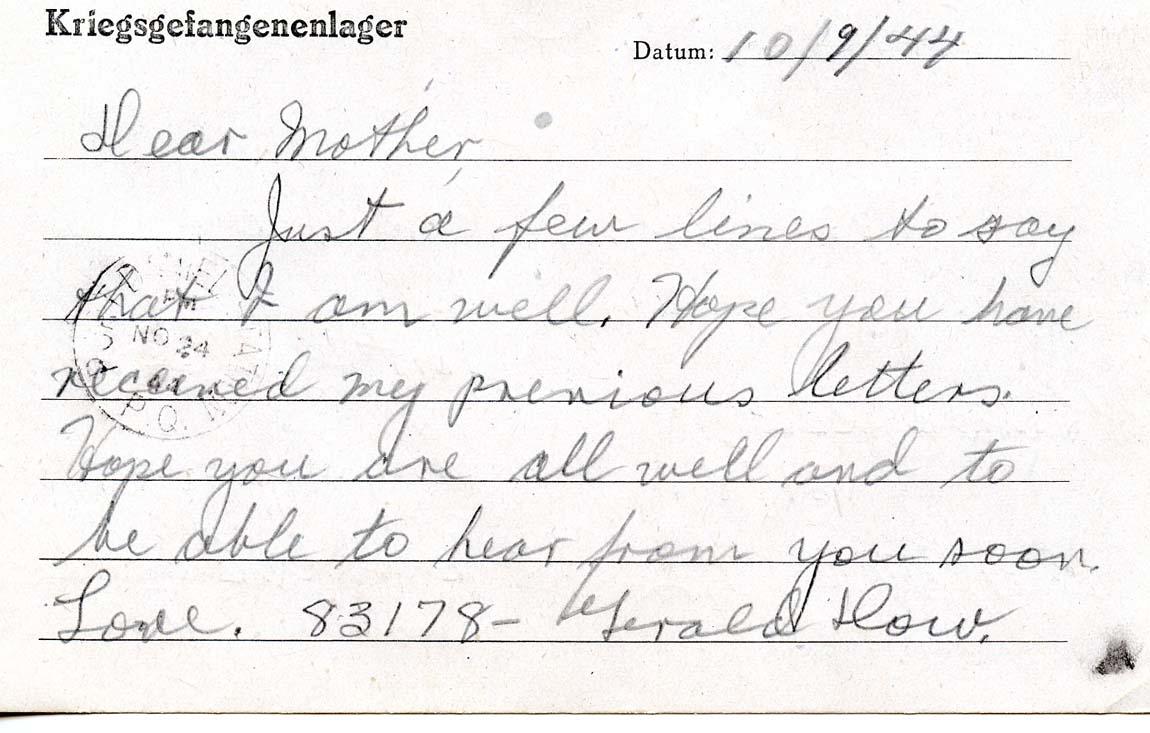 Kriegsgefangenenlager
Datum: 10/9/44
Dear Mother,
Just a few lines to say
that I am well. Hope you have
received my previous letters.
Hope you are all well and to
be able to hear from you soon.
Love. 83178- Gerald Dow.
PM
NO 24
44
P.Q.